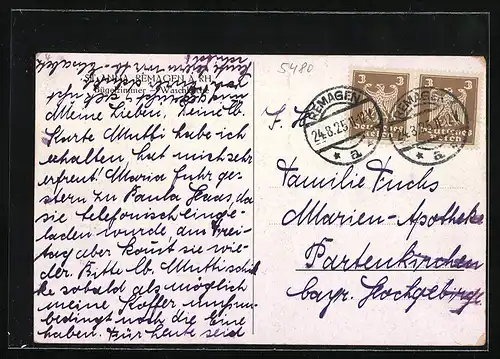 ST. ANNA, REMAGEN A. RH.
Bügelzimmer – Waschküche
Meine Lieben, Deine lb.
Karte Mutti habe ich
erhalten, hat mich sehr
erfreut! Maria fuhr ge-
stern zu Paula Haas, da
sie telefonisch einge-
laden wurde aus Frei-
tag aber kommt sie wie-
der. Bitte lb. Mutti schik-
ke sobald als möglich
meine Koffer
bedingt noch die eine
haben. Für heute seid
5480
REMAGEN
24.8.25
* a
REMAGEN
24.8.25
* a
3 3
Deutsches Reich
3 3
Deutsches Reich
Familie Fuchs
Marien-Apotheke
Partenkirchen
bayr. Hochgebirge